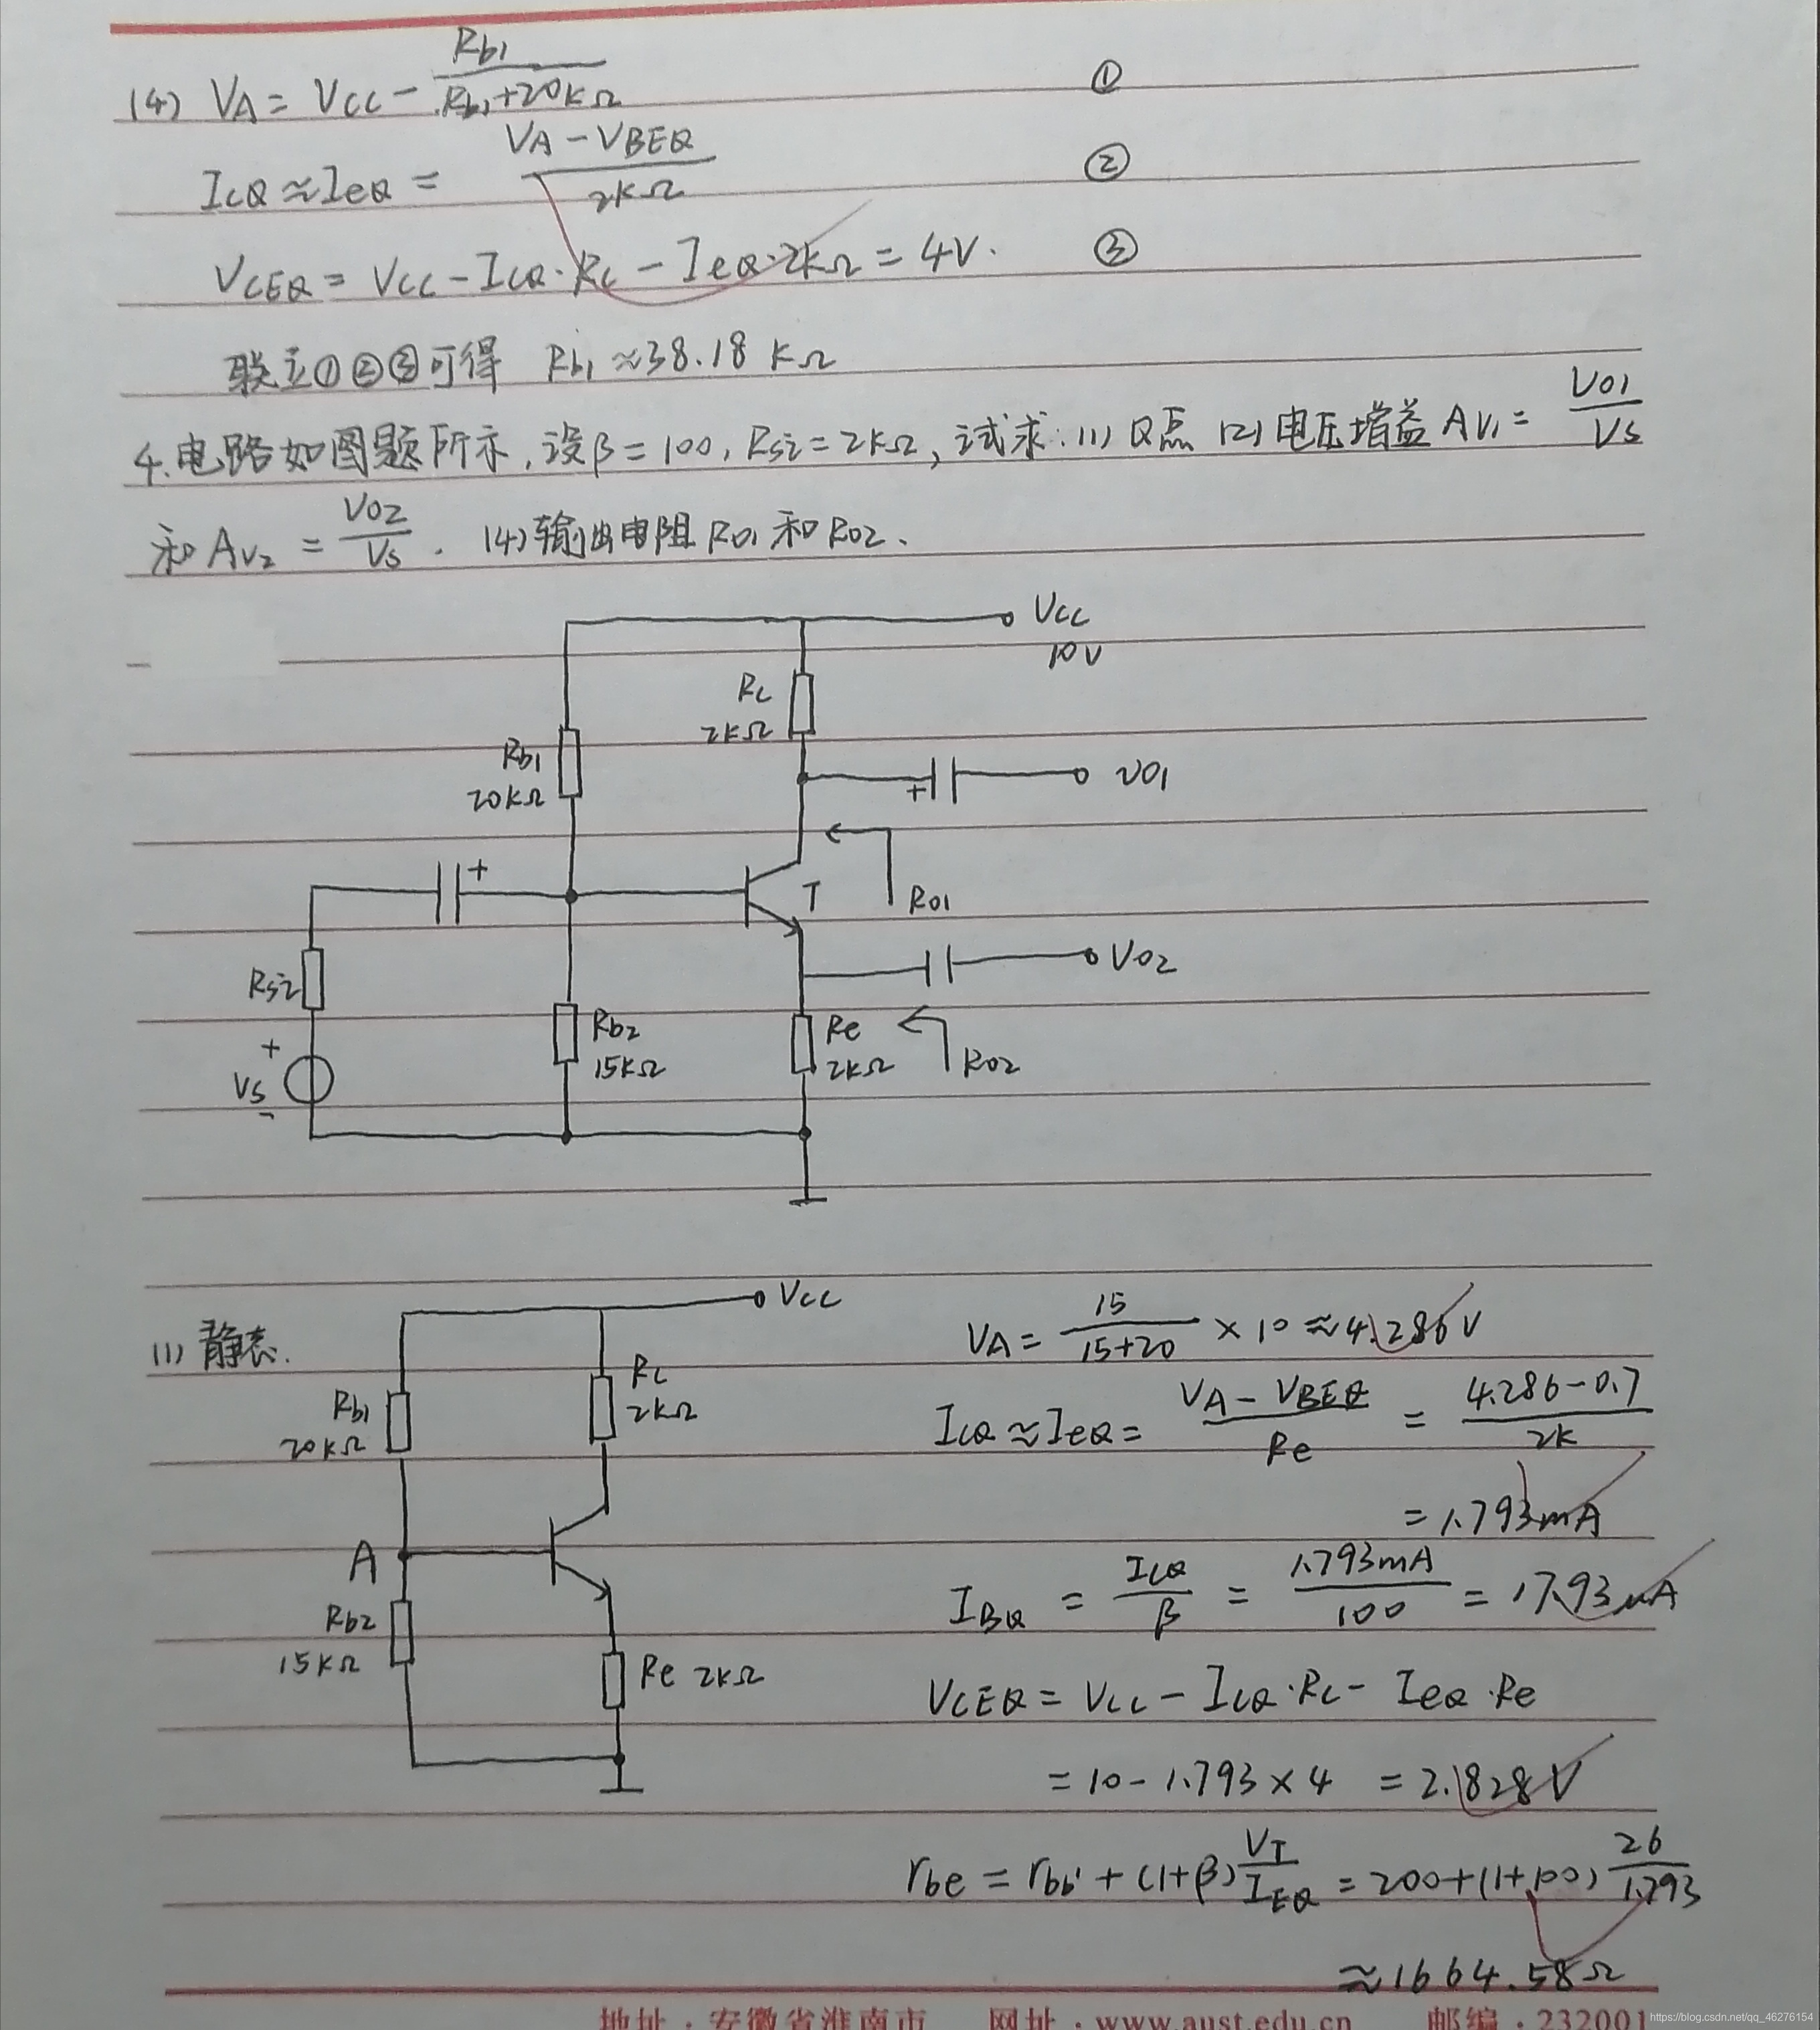 (4) VA = VCC - Rb1 / (Rb1+20kΩ) ①
ICQ ≈ IeQ = (VA - VBEQ) / 2kΩ ②
VCEQ = VCC - ICQ·RC - IeQ·2kΩ = 4V. ③
联立①②③可得 Rb1 ≈ 38.18 KΩ
4.电路如图题所示,设β=100, Rsi=2kΩ,试求:(1) Q点 (2) 电压增益 AV1 = VO1/VS
和 AV2 = VO2/VS . (4)输出电阻 RO1 和 RO2.
VCC
10V
RC
2kΩ
Rb1
20kΩ
+
VO1
+
T
RO1
VO2
Rsi
Rb2
15kΩ
Re
2kΩ
RO2
+
VS
-
(1) 静态.
VCC
RC
2kΩ
Rb1
20kΩ
A
Rb2
15kΩ
Re 2kΩ
VA = 15/(15+20) × 10 ≈ 4.286V
ICQ ≈ IeQ = (VA - VBEQ)/Re = (4.286-0.7)/2k
= 1.793mA
IBQ = ICQ/β = 1.793mA/100 = 17.93uA
VCEQ = VCC - ICQ·RC - IeQ·Re
= 10 - 1.793 × 4 = 2.828V
rbe = rbb' + (1+β) VT/IEQ = 200+(1+100) 26/1.793
≈ 1664.58Ω
地址·安徽省淮南市 网址·www.aust.edu.cn 邮编·232001
https://blog.csdn.net/qq_46276154